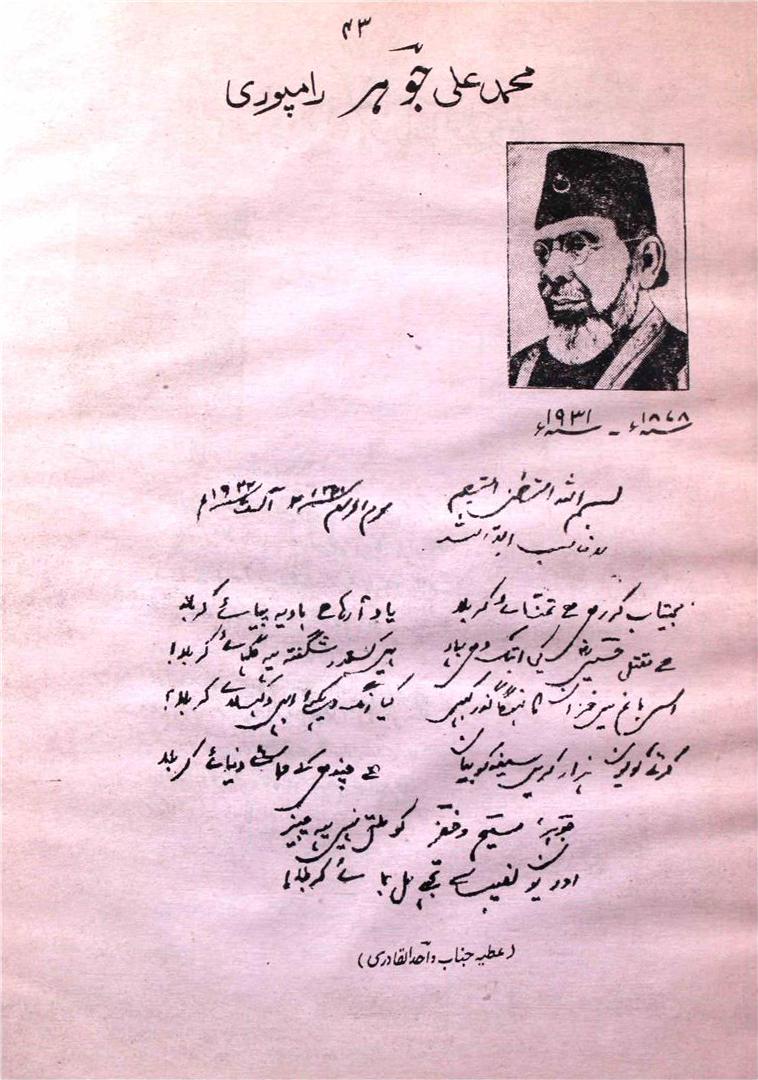 ۴۳
محمد علی جوہر رامپوری
۱۸۷۸ء - ۱۹۳۱ء
بسم اللہ الرحمن الرحیم
محرم الحرام آگست
لا غالب الا اللہ
بیتاب کر رہی ہے تمنائے کربلا یاد آ رہا ہے بادیہ پیمائے کربلا
ہے مقتل حسینؓ کی ابتک وہی بہار ہیں کسقدر شگفتہ یہ گلہائے کربلا!
اس باغ میں خزاں کا نہیں گذر کہیں کیا رنگ کربلا!
کرتے کو یوں ہزار کریں سینہ کوبیاں ہے چند ہی کے واسطے دنیائے کربلا
جوہر مسیح و خضر کو ملتی نہیں یہ چیز
اور یوں نصیب سے تجھے مل جائے کربلا!
(عطیہ جناب واحد القادری)